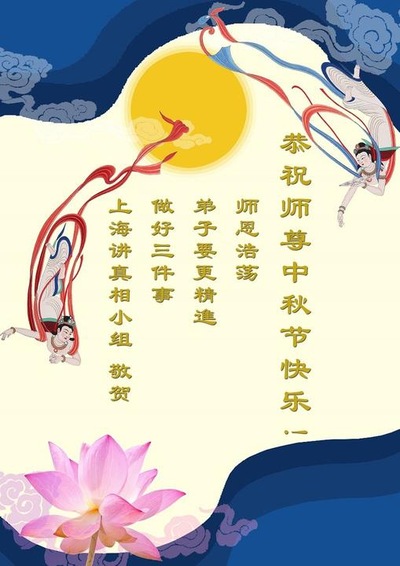 恭祝师尊中秋节快乐!
师恩浩荡
弟子要更精進
做好三件事
上海讲真相小组 敬贺